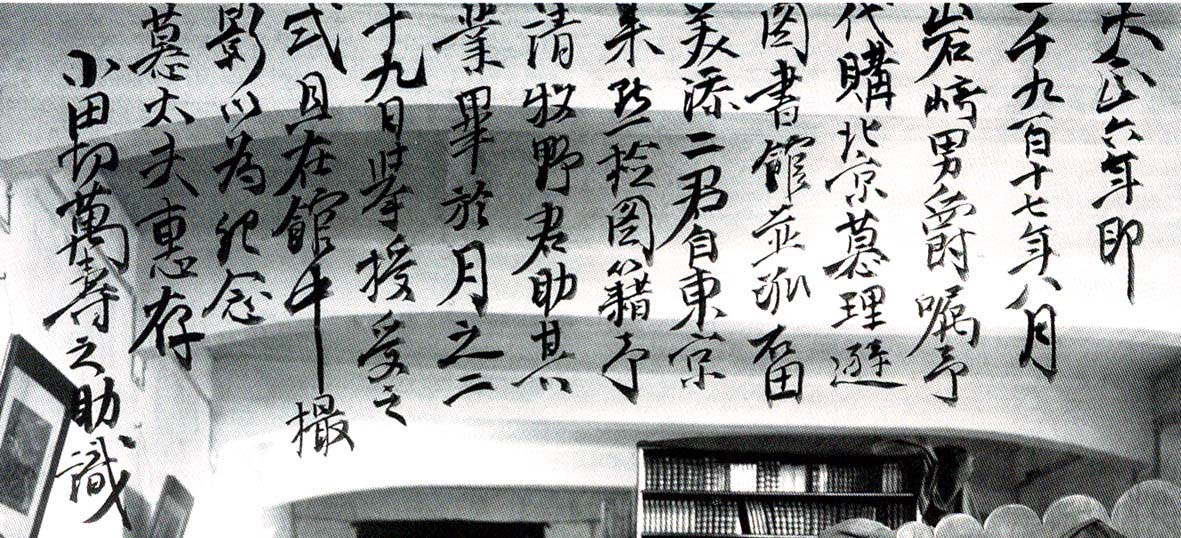 大正六年即
一千九百十七年八月
岩崎男爵嘱予
代購北京慕理遜
圖書館並派石田
美添二君自東京
来點撿圖籍予
請牧野君助其
業畢於月之二
十九日挙授受之
式且在館中撮
影以為紀念
慕大夫惠存
小田切萬壽之助識